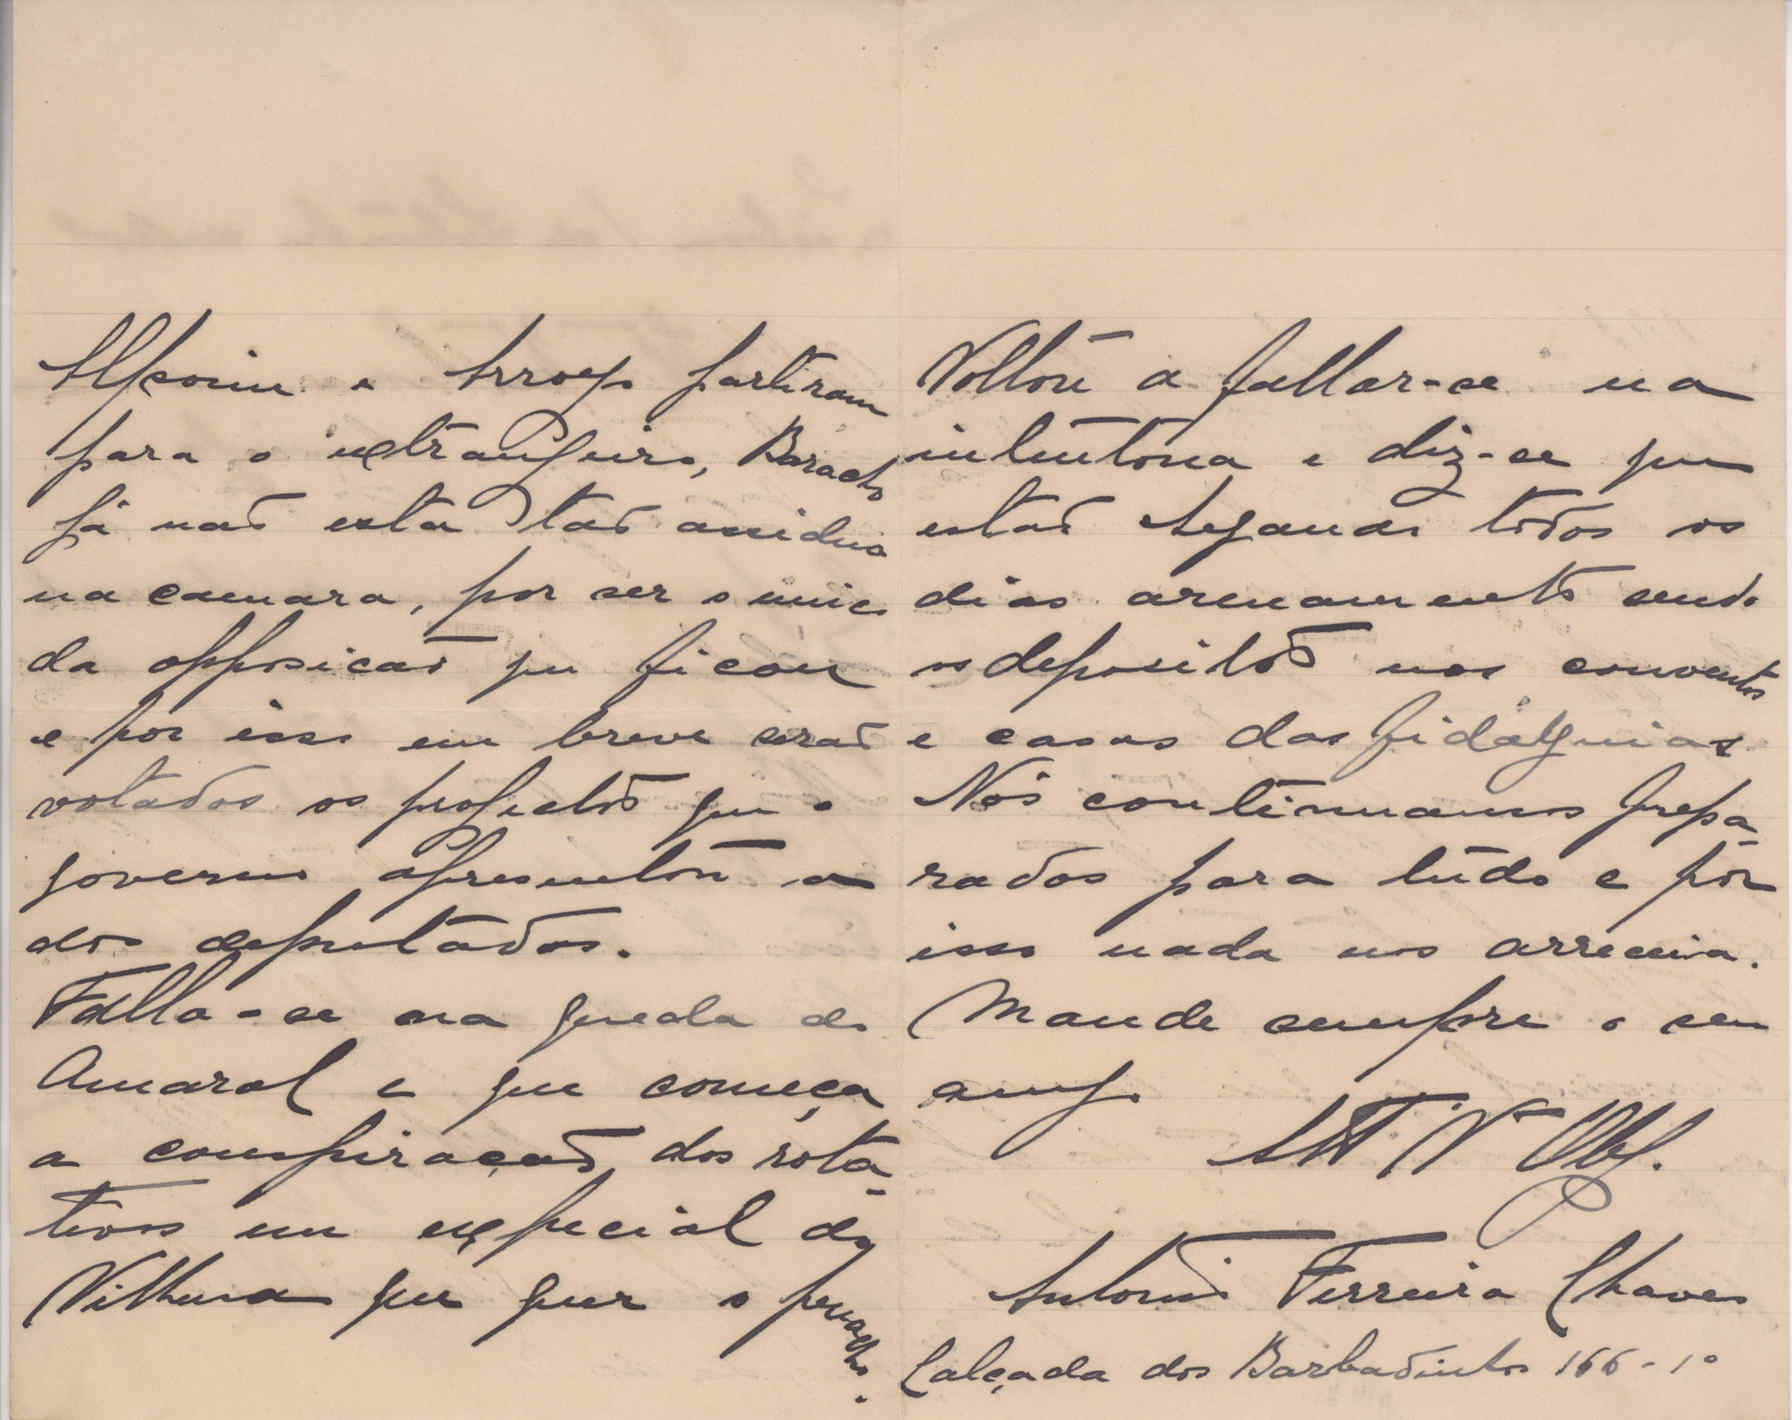 Alpoim e Arroyo partiram
para o extrangeiro, Baracho
já não está tão assiduo
na camara, por ser o unico
da opposicão que ficou
e por isso em breve serão
votados os projectos que o
governo apresentou a
dos deputados.
Falla-se na queda do
Amaral e que começa
a conspiração dos rota-
tivos em especial do
Vilhena que quer o penacho.
Voltou a fallar-se na
intentona e diz-se que
estão chegando todos os
dias armamento sendo
os depositos nos conventos
e casas das fidalguias
Nós continuamos prepa-
rados para tudo e por
isso nada nos arreceia.
Mande sempre o seu
amgo.
Att Vor Obg.
Antonio Ferreira Chaves
Calçada dos Barbadinhos 166-1º